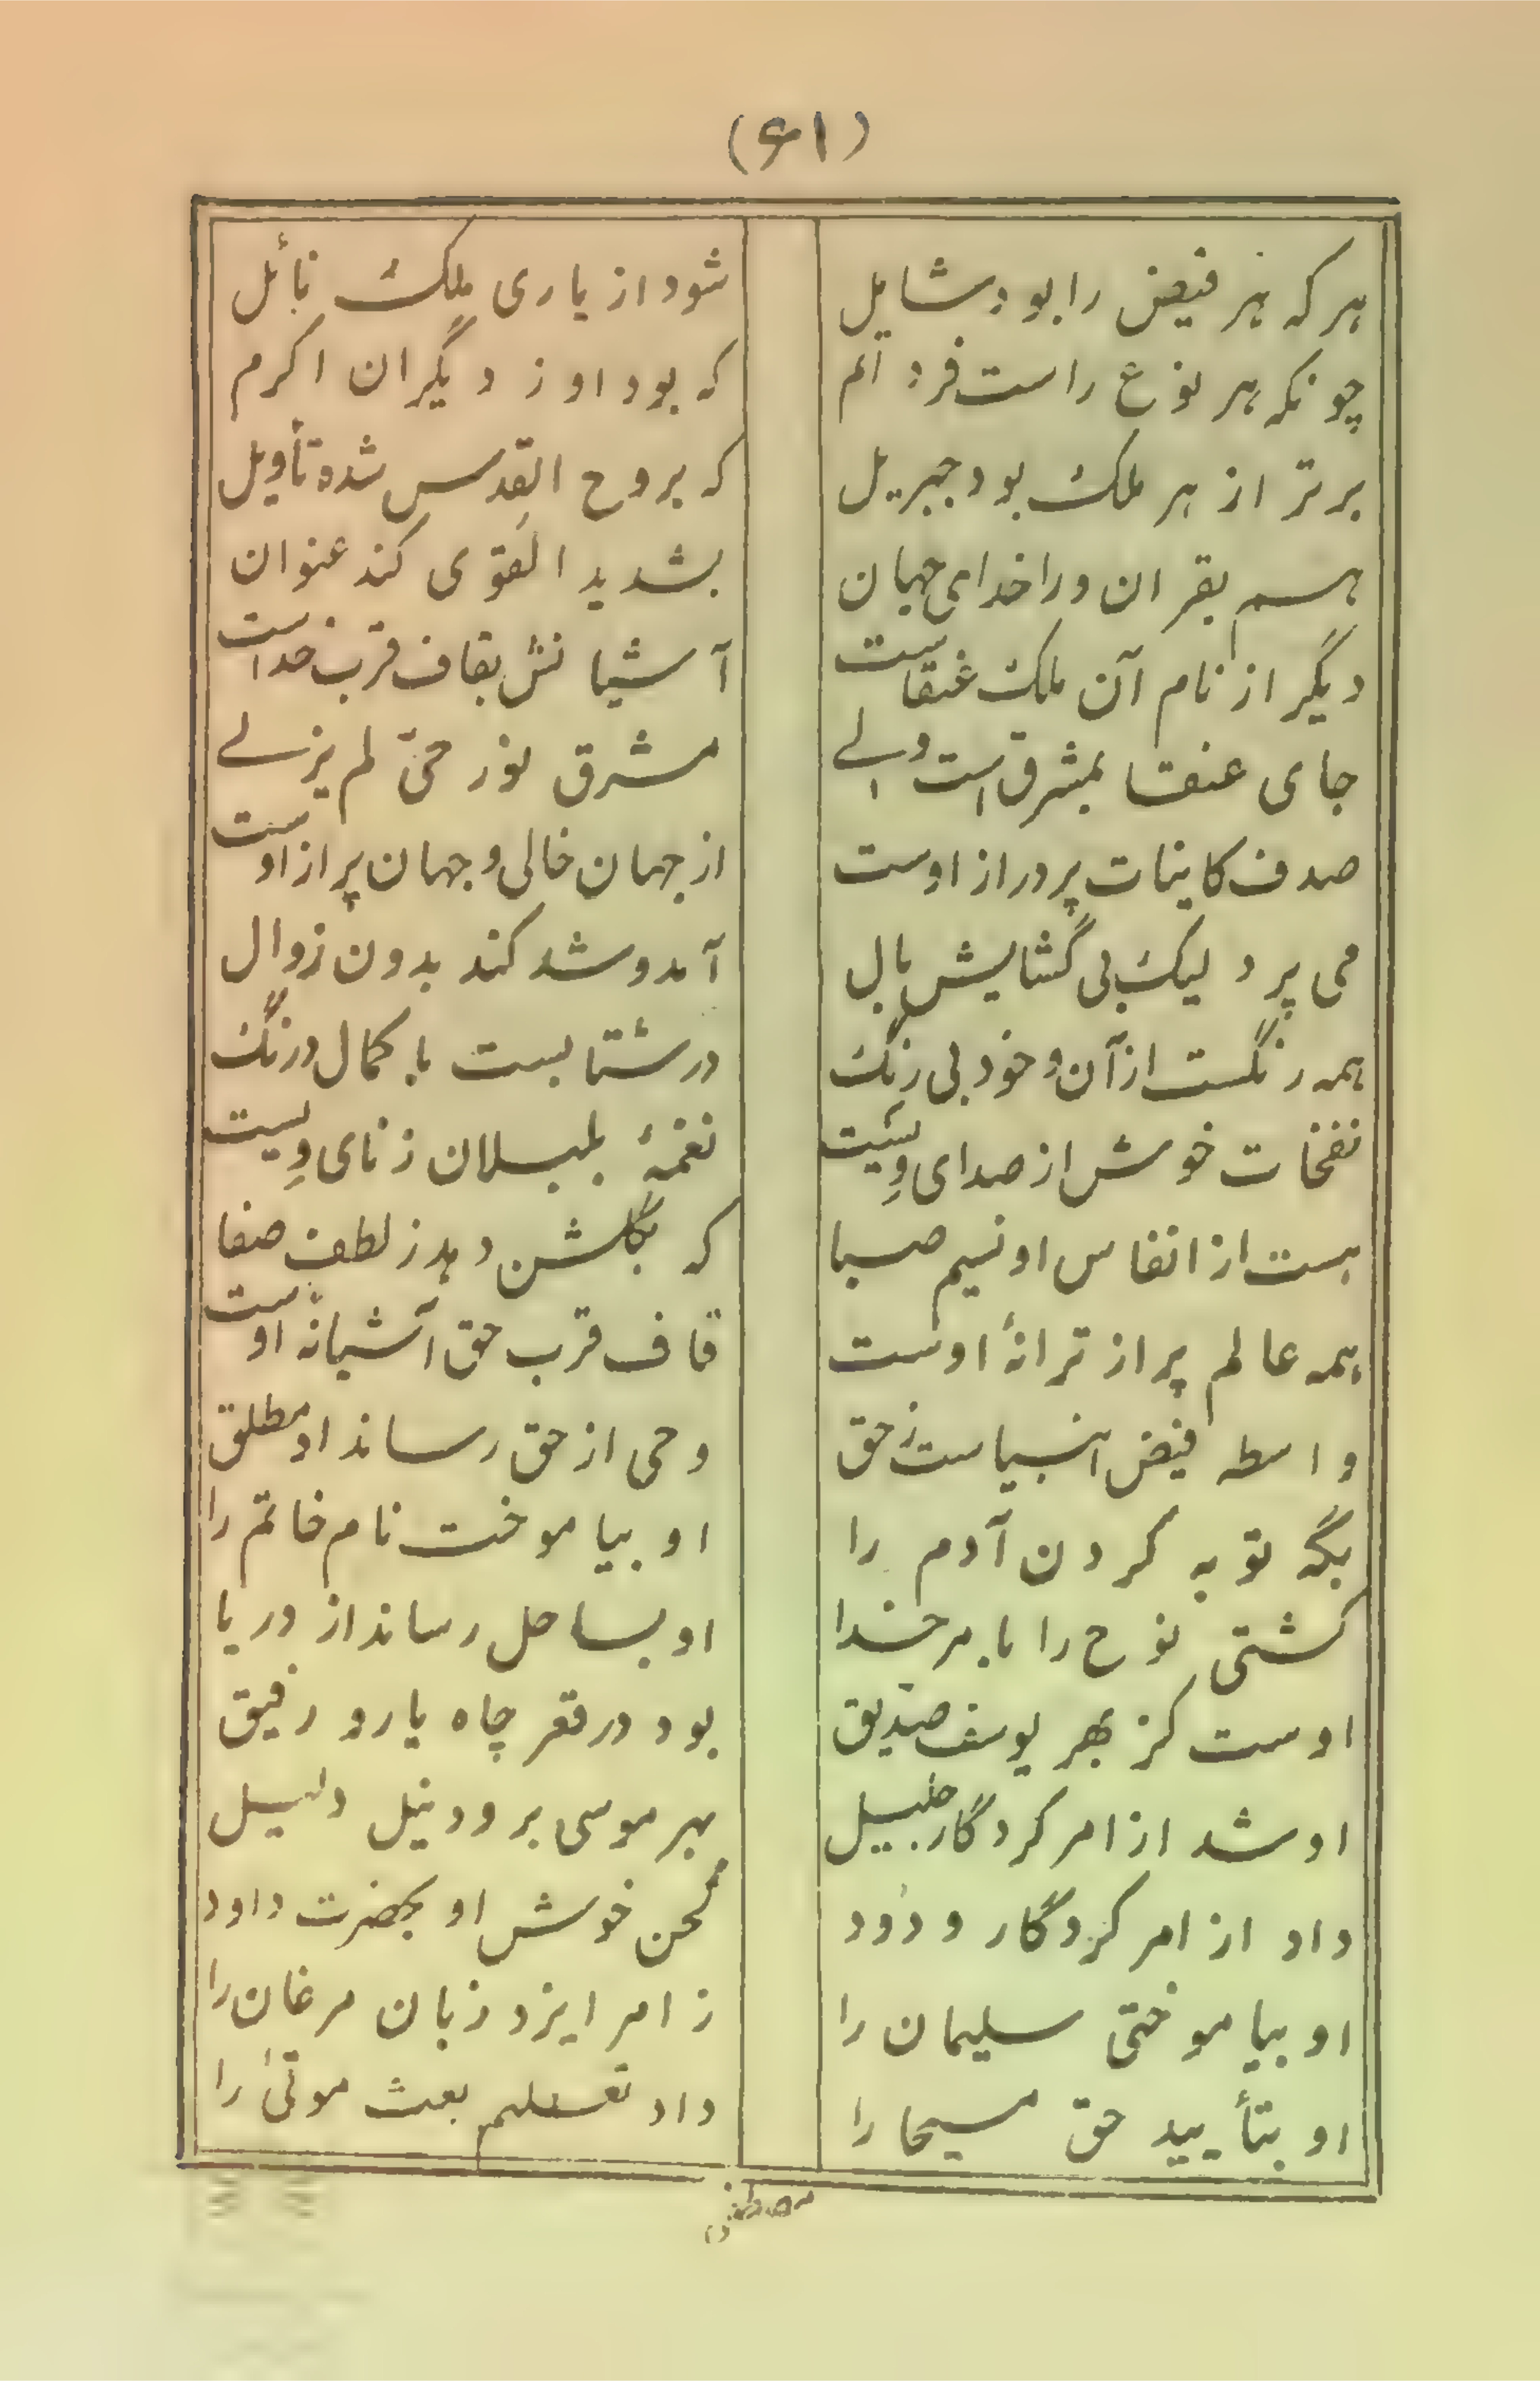 (۶۱)
هر که هر فیض را بود شایل
شود از یاری ملک نائل
چونکه هر نوع راست فرد اتم
که بود او ز دیگران اکرم
برتر از هر ملک بود جبریل
که بروح القدس شده تأویل
هم بقران ورا خدای جهان
بشدید القوی کند عنوان
دیگر از نام آن ملک عنقاست
آشیانش بقاف قرب خداست
جای عنقا بمشرق است ولے
مشرق نور حیّ لم یزلے
صدف کاینات پر در از اوست
از جهان خالی و جهان پر از اوست
می پرد لیک بی گشایش بال
آمد و شد کند بدون زوال
همه رنگست از آن و خود بی رنگ
در شتابست با کمال درنگ
نفخات خوش از صدای ویست
نغمهٔ بلبلان ز نای ویست
هست از انفاس او نسیم صبا
که بگلشن دهد ز لطف صفا
همه عالم پر از ترانهٔ اوست
قاف قرب حق آشیانهٔ اوست
واسطه فیض انبیاست ز حق
وحی از حق رساند او مطلق
بگه توبه کردن آدم را
او بیاموخت نام خاتم را
کشتی نوح را بامر خدا
او بساحل رساند از دریا
اوست کز بهر یوسف صدّیق
بود در قعر چاه یار و رفیق
او شد از امر کردگار جلیل
بهر موسی برود نیل دلیل
داد از امر کردگار ودُود
لحن خوش او بحضرت داود
او بیاموختی سلیمان را
ز امر ایزد زبان مرغان را
او بتأیید حق مسیحا را
داد تعلیم بعث موتیٰ را
مصطفی